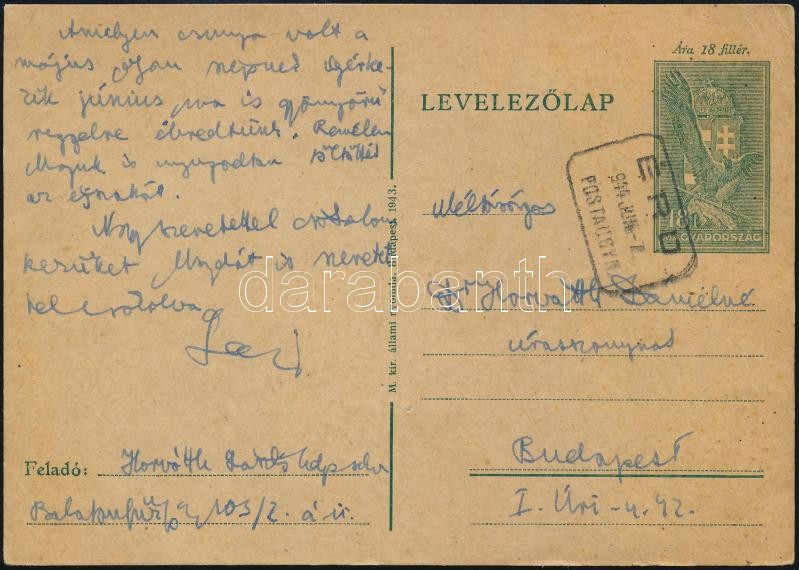 Amilyen csunya volt a
május olyan szépnek igérke-
zik június, ma is gyönyörű
reggelre ébredtünk. Remélem
Maguk is nyugodtan töltötték
az éjszakát.
Nagy szeretettel csókolom
kezüket Magdát is szeretet-
tel csókolva
Feladó: Horváth
Balatonfüred, 103/2. á. ü.
M. kir. állami nyomda, Budapest, 1943.
LEVELEZŐLAP
Ára 18 fillér.
18
MAGYARORSZÁG
ÉRD
944 JUN
POSTAÜGYN
Méltóságos
Dr Horváth Dánielné
úrasszonynak
Budapest
I. Úri-u. 42.
darabanth